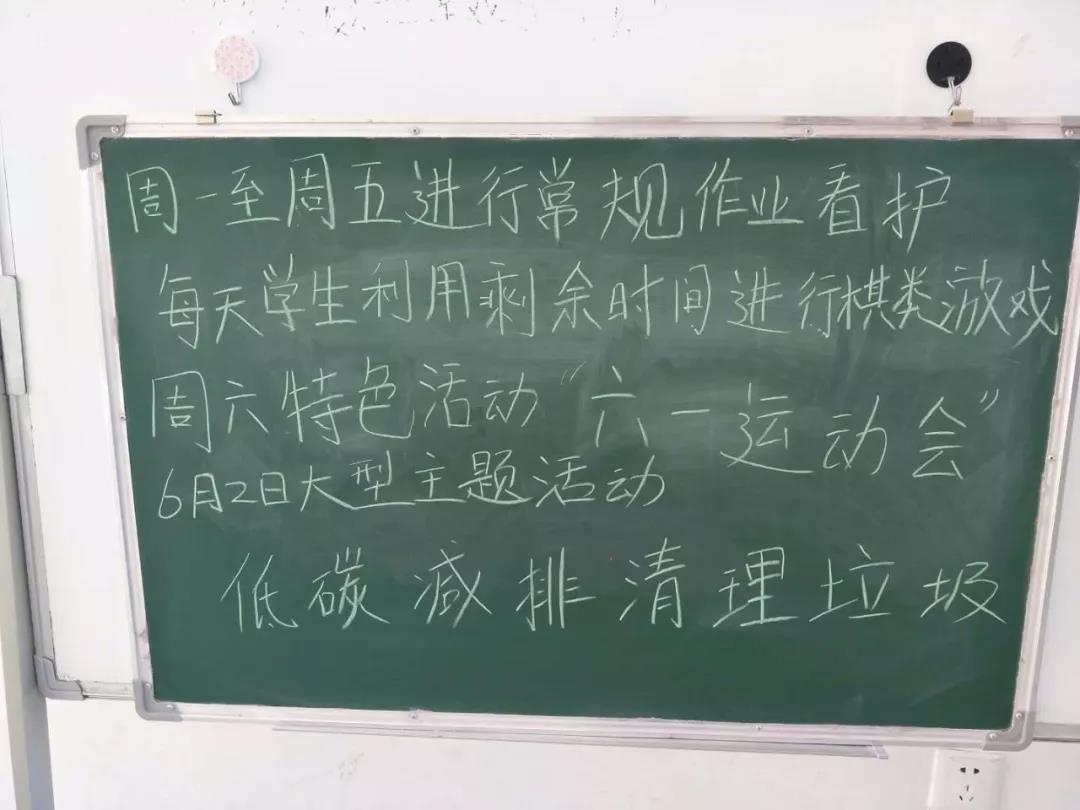 周一至周五进行常规作业看护
每天学生利用剩余时间进行棋类游戏
周六特色活动“六一运动会”
6月2日大型主题活动
低碳减排清理垃圾